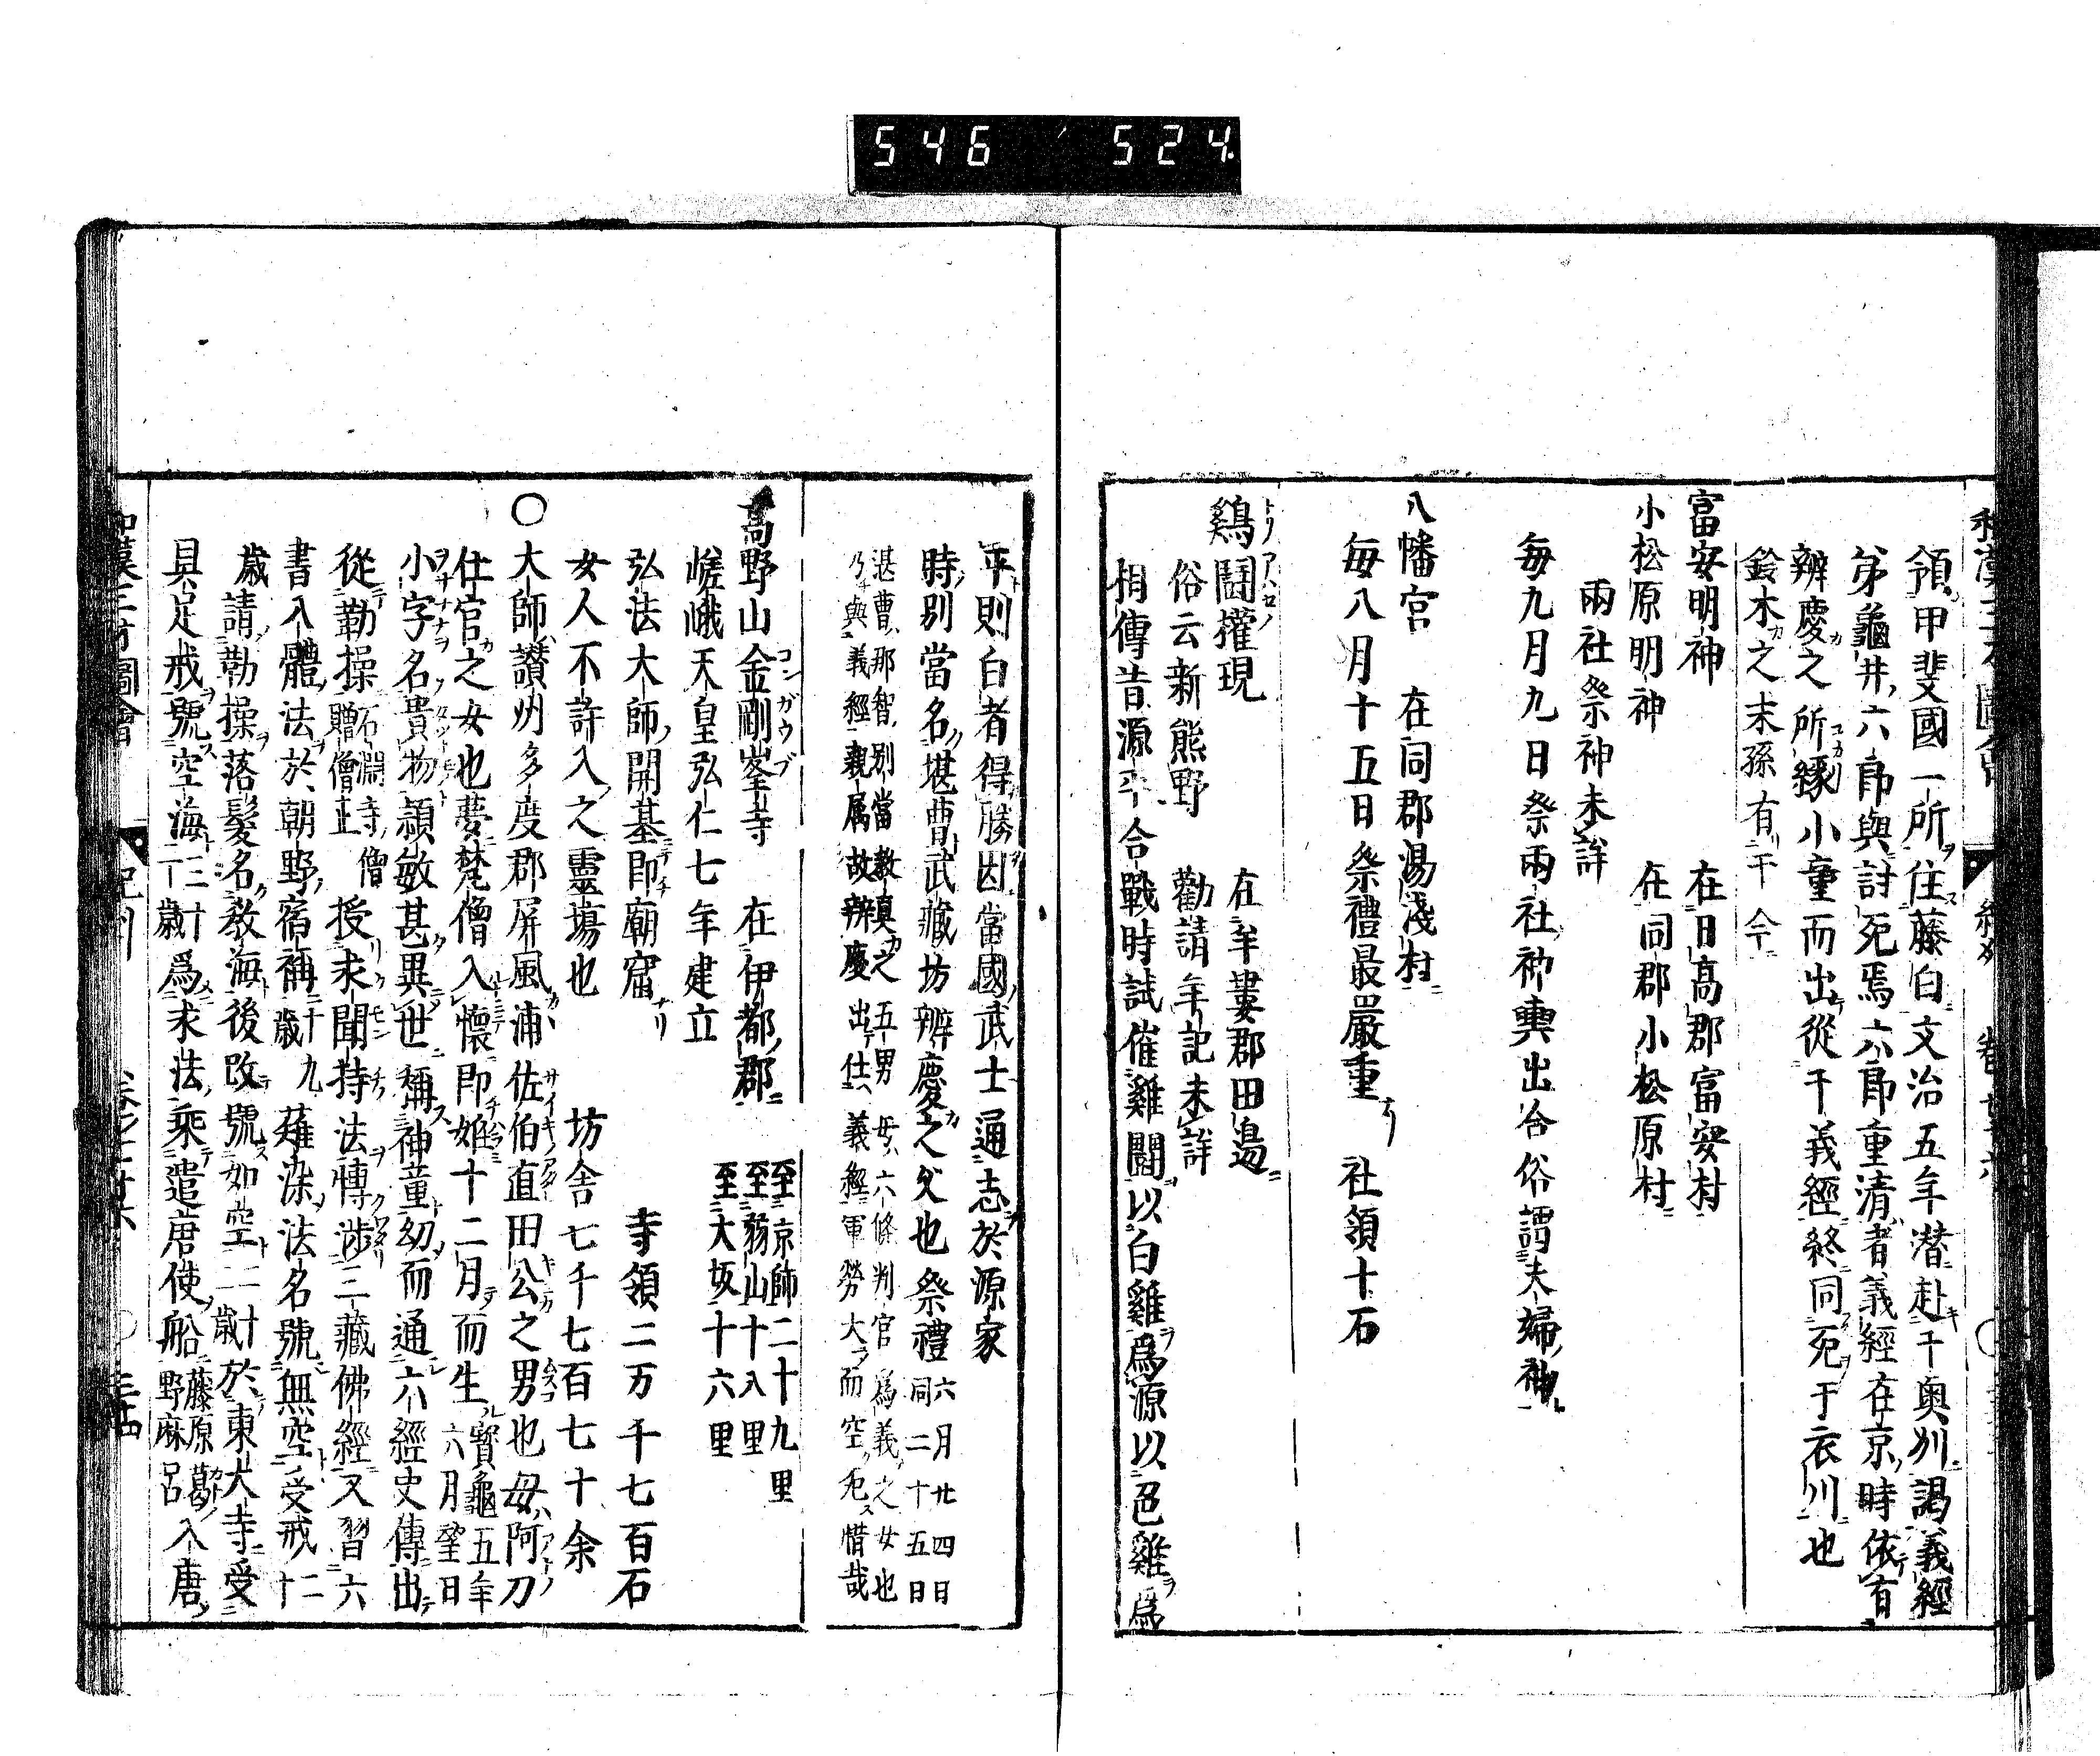 546 524
領甲斐國一所住藤白文治五年潜赴于奥州謁義經
弟龜井六郎與討死焉六郎重清者義經在京時依有
辨慶之所縁小童而出從于義經終同死于衣川也
鈴木之末孫有于今
富安明神 在日高郡富安村
小松原明神 在同郡小松原村
兩社祭神未詳
毎九月九日祭兩社神輿出合俗謂夫婦神
八幡宮 在同郡湯淺村
毎八月十五日祭禮最嚴重 社領十石
鷄鬪權現 在牟婁郡田邉
俗云新熊野 勸請年記未詳
相傳昔源平合戰時試催雞鬪以白雞爲源以色雞爲
平則白者得勝因當國武士通志於源家
時別當名堪曹武藏坊辨慶之父也祭禮六月廿四日同二十五日
湛曹那智別當教真之五男母六條判官爲義之女也
乃與義經親属故辨慶出仕義經軍勞大而空死惜哉
高野山金剛峯寺 在伊都郡 至京師二十九里 至粉山十八里 至大坂十六里
嵯峨天皇弘仁七年建立
弘法大師開基即廟窟 寺領二万千七百石
女人不許入之靈塲也 坊舎七千七百七十余
○大師讃州多度郡屏風浦佐伯直田公之男也母阿刀
住官之女也夢梵僧入懷即姙十二月而生寳龜五年六月望日
小字名貴物頴敏甚異世稱神童幼而通六經史傳出
從勤操石淵寺僧贈僧正授求聞持法愽渉三藏佛經又習六
書八體法於朝野宿祢十九歳薙染法名號無空受戒二十
歳請勤操落髪名教海後改號如空二十二歳於東大寺受
具足戒號空海三十一歳爲求法乘遣唐使船藤原葛野麻呂入唐